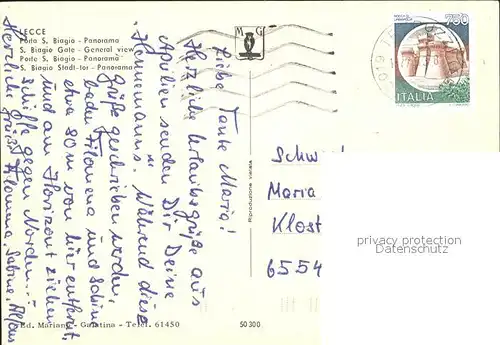 LECCE
Porta S. Biagio - Panorama
S. Biagio Gate - General view
Porte S. Biagio - Panorama
S. Biagio Stadt-tor - Panorama
M G
750
ITALIA
Liebe Tante Maria!
Herzliche Urlaubsgrüße aus
Apulien senden Dir Deine
"Hannemanns". Während diese
Grüße geschrieben werden,
baden Filomena und Sabine
etwa 80 m von hier entfernt,
und am Horizont ziehen
Schiffe gegen Norden...!
Herzliche Grüße Filomena, Sabine,
Riproduzione vietata
Schw
Maria
Klost
6554
privacy protection
Datenschutz
Ed. Mariano - Galatina - Telef. 61450
50300